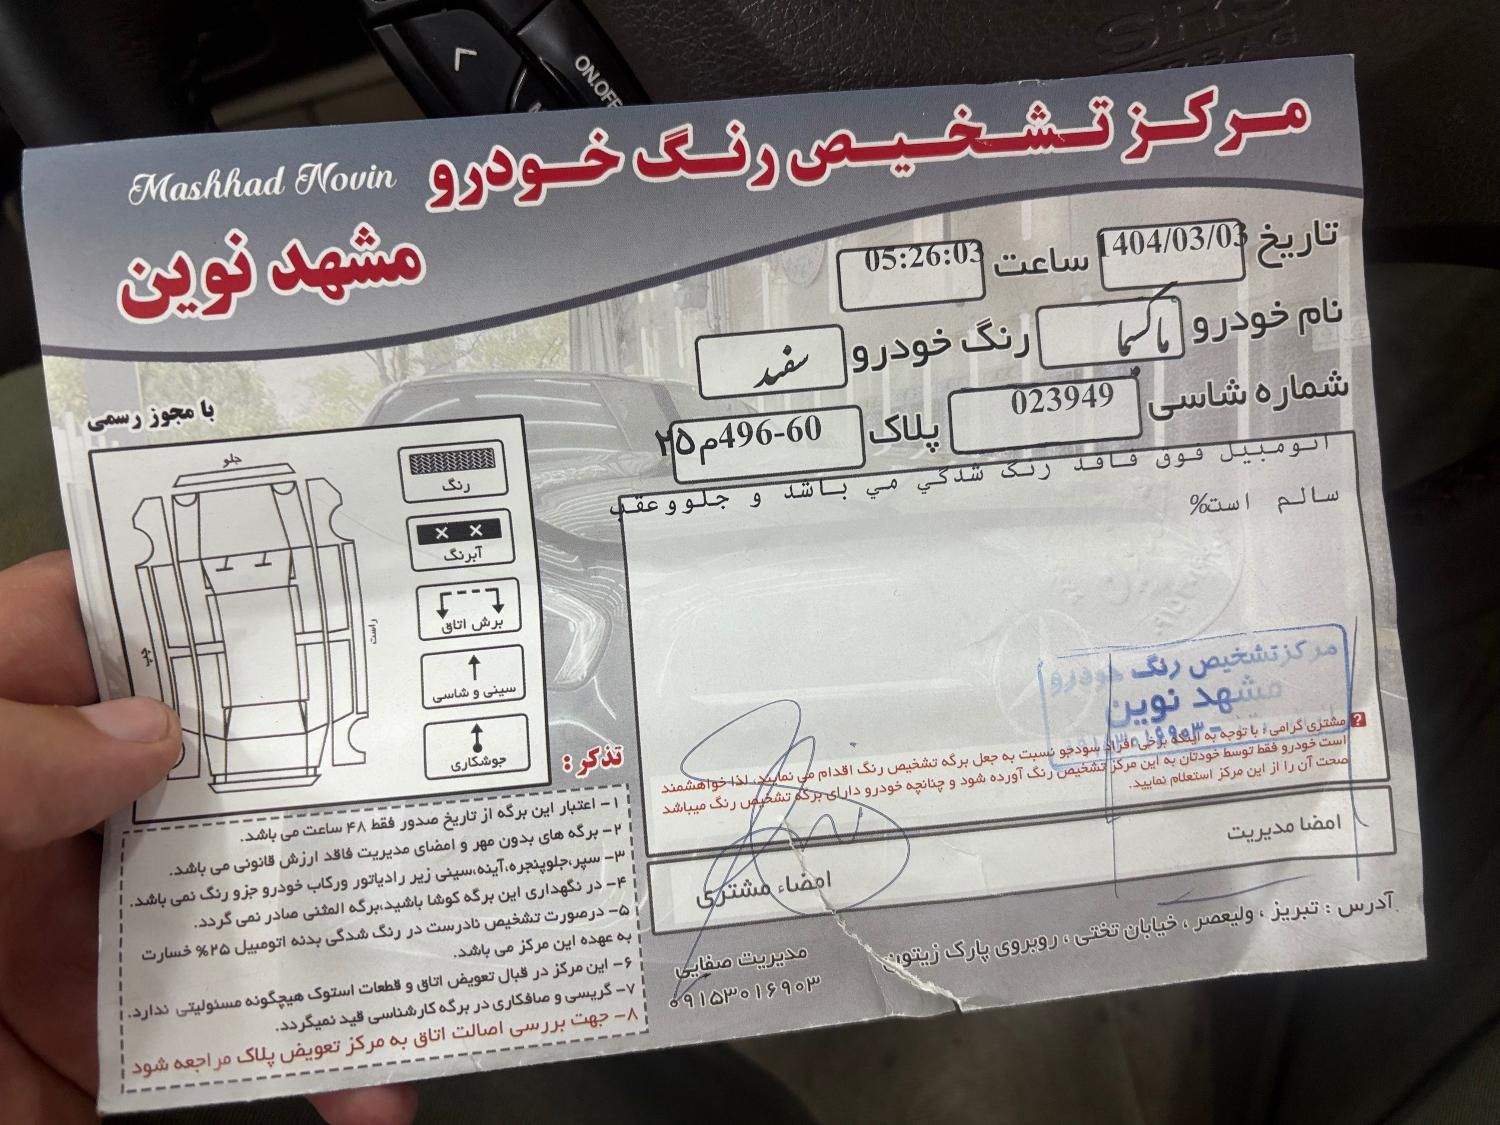 مرکز تشخیص رنگ خودرو
Mashhad Novin
مشهد نوین
تاریخ 1404/03/03 ساعت 05:26:03
نام خودرو ماکسیما رنگ خودرو سفید
شماره شاسی 023949 پلاک 60-496م25
اتومبیل فوق فاقد رنگ شدگي مي باشد و جلووعقب
سالم است%
با مجوز رسمی
جلو
چپ
راست
رنگ
آبرنگ
برش اتاق
سینی و شاسی
جوشکاری
مرکز تشخیص رنگ خودرو
مشهد نوین
مشتری گرامی، با توجه به اینکه برخی افراد سودجو نسبت به جعل برگه تشخیص رنگ اقدام می نمایند، لذا خواهشمند
است خودرو فقط توسط خودتان به این مرکز تشخیص رنگ آورده شود و چنانچه خودرو دارای برگه تشخیص رنگ میباشد
صحت آن را از این مرکز استعلام نمایید.
امضا مدیریت
امضاء مشتری
آدرس : تبریز ، ولیعصر ، خیابان تختی ، روبروی پارک زیتون
مدیریت صفایی
۰۹۱۵۳۰۱۶۹۰۳
تذکر :
۱- اعتبار این برگه از تاریخ صدور فقط ۴۸ ساعت می باشد.
۲- برگه های بدون مهر و امضای مدیریت فاقد ارزش قانونی می باشد.
۳- سپر،جلوپنجره،آینه،سینی زیر رادیاتور ورکاب خودرو جزو رنگ نمی باشد.
۴- در نگهداری این برگه کوشا باشید،برگه المثنی صادر نمی گردد.
۵- درصورت تشخیص نادرست در رنگ شدگی بدنه اتومبیل ۲۵% خسارت
به عهده این مرکز می باشد.
۶- این مرکز در قبال تعویض اتاق و قطعات استوک هیچگونه مسئولیتی ندارد.
۷- گریسی و صافکاری در برگه کارشناسی قید نمیگردد.
۸- جهت بررسی اصالت اتاق به مرکز تعویض پلاک مراجعه شود
ON.OFF
SRS